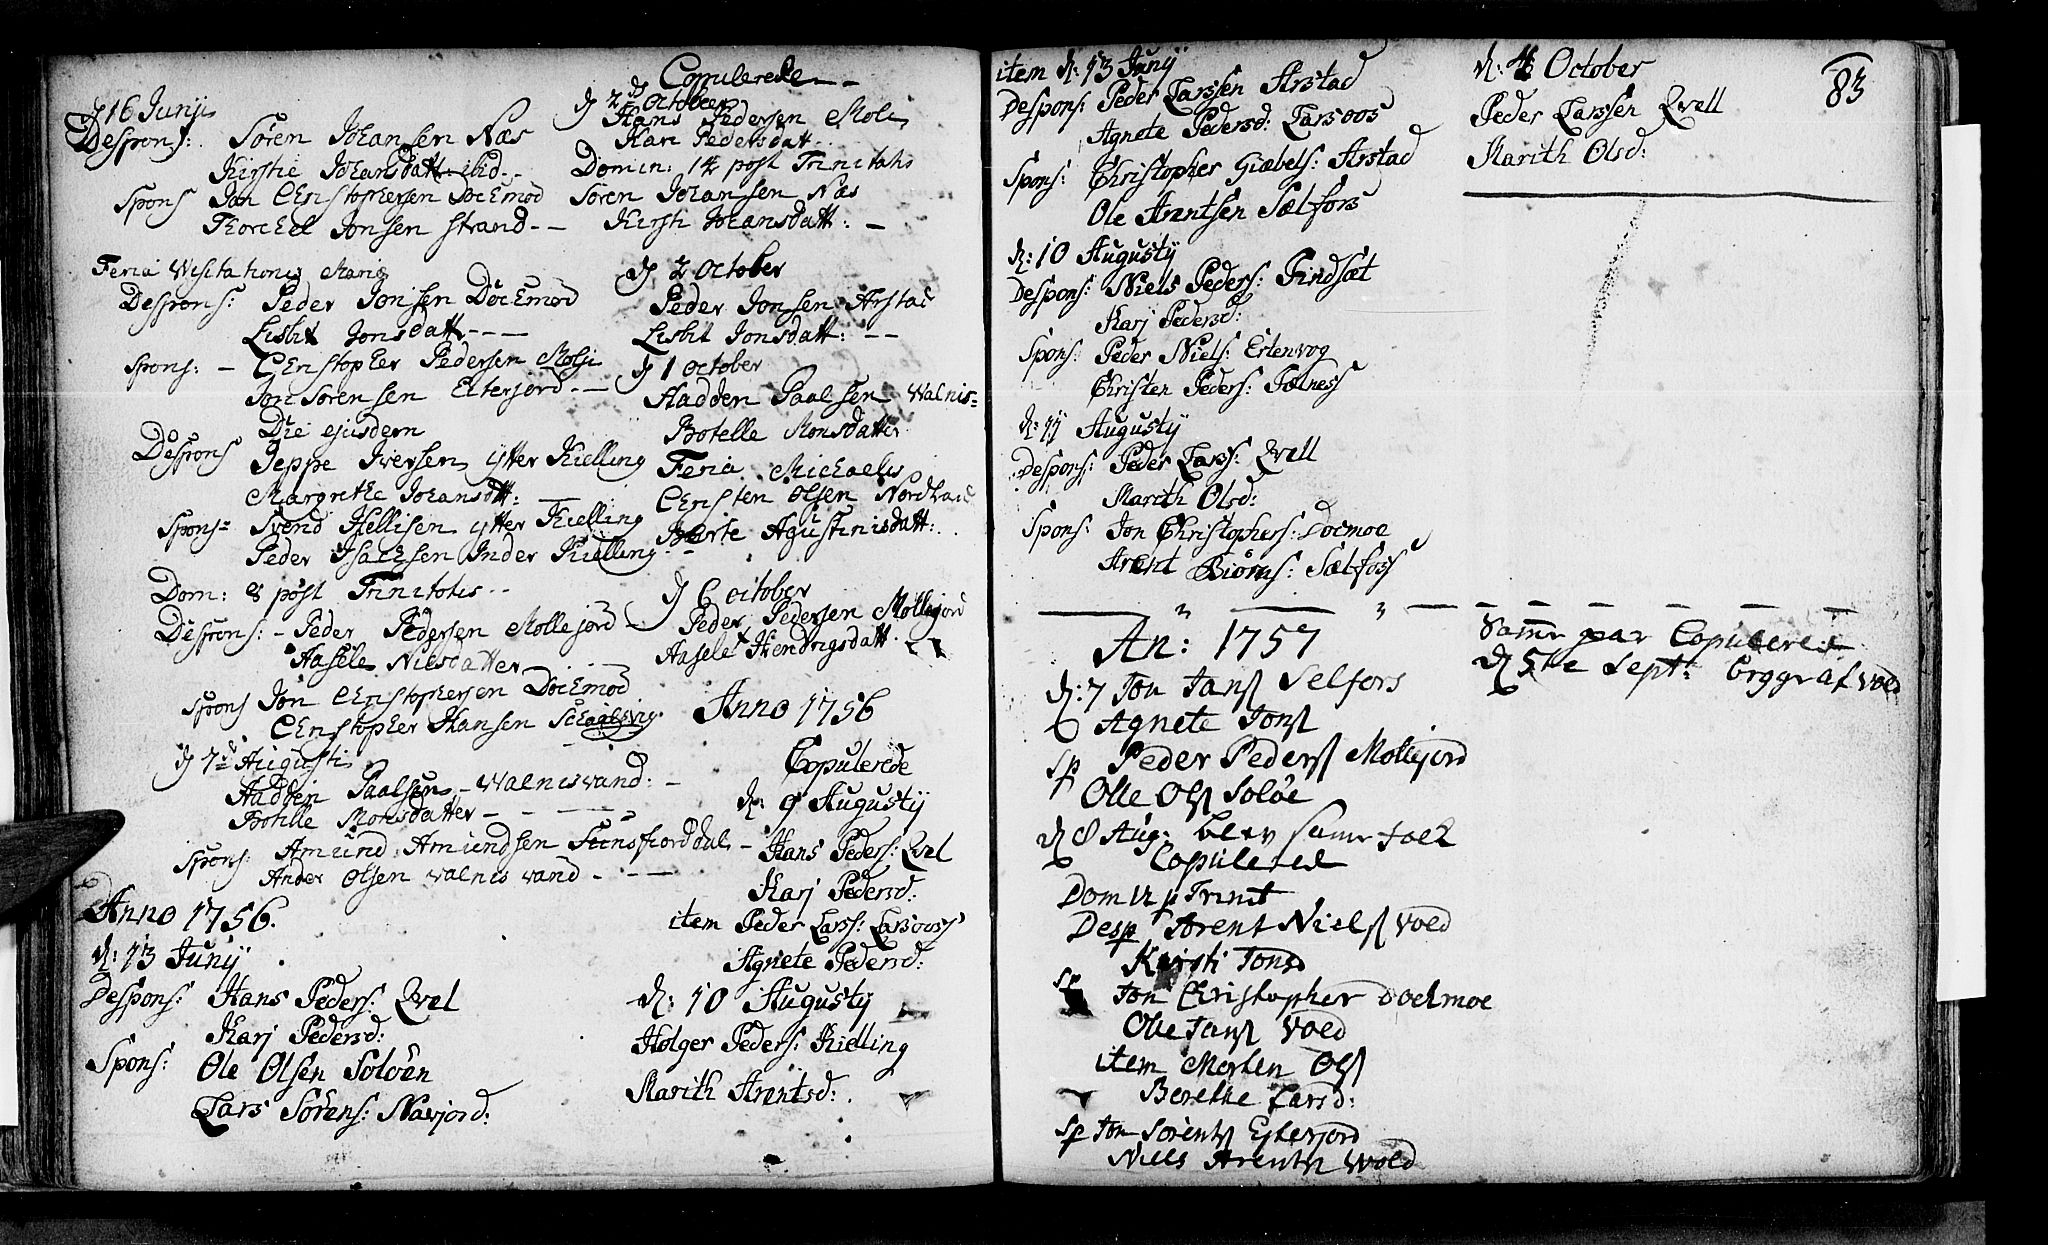 d 16 Junij
Despons: Sören Johansen Næs
Kirstie Johansdatt ibid.
Spons Jon Christophersen Docmod
Torchel Jonsen Strand
Feria Visitationis Mariæ
Despons: Peder Jonsen Döcmod
Lisbit Jonsdatt
Spons: Christopher Pedersen
Jon Sörensen Elterfjord
Die ejusdem
Despons Jeppe Iversen ytter Kielling
Margrethe Johansdtt:
Spons Svend Hellisen ytter Kielling
Peder Isachsen Inder Kielling
Dom: 8 post Trinitatis
Despons: Peder Pedersen Mollejord
Aasele Nilsdatter
Spons Jon Christophersen Docmod
Christopher Hansen
d 7d Augusti
Hadden Paalsen Walnisvand:
Botille Monsdatter
Spons: Amund Amundsen
Ander Olsen Valnisvand
Anno 1756.
d: 13 Junij
Despons: Hans Peders: Qvel
Karj Pedersd:
Spons: Ole Olsen Soløen
Lars Sörens: Navjord:
Copulerede
d 2d October
Hans Pedersen
Kari Pedersdatt
Domin: 14 post Trinitatis
Sören Johansen Næs
Kirsti Johansdatt:
d 2 October
Peder Jonsen Arstad
Lisbit Jonsdatt:
d 1 October
Hadden Paalsen Walnis=
Botelle Monsdatter
Feria Michaelis
Christen Olsen
Agustinisdatt:
d 6 October
Peder Pedersen Mollejord
Aasele Hendrigsdatt
Anno 1756
Copulerede
d: 9 Augustij
Hans Peders: Qvel
Karj Pedersd:
item Peder Larss: Larsoos
Agnete Pedersd:
d: 10 Augustij
Holger Peders: Kielling
Marith Arentsd:
item d: 13 Junij
Despons: Peder Larssen Arstad
Agnete Pedersd: Larsoos
Spons: Christopher Giæbels: Arstad
Ole Arentsen Sælfors
d: 10 Augustij
Despons: Niels Peders: Findsæt
Karj Pedersd:
Spons: Peder Niels: Ertenvog
Christen Peders:
d: 11 Augustij
Despons: Peder Larss: Qvell
Marith Olsd:
Spons: Jon Christophers: Docmoe
Arent Biörns: Sælfors
An: 1757
d: 7 Jon Jans Selfors
Agnete Jons
Sp Peder Peders Mollejord
Olle Ols Soløe
d 8 Aug: blev samme Folk
Copulered
Dom 12 p Trinit
Desp Arent Niels Voed
Kirsti Jonsd
Sp Jon Christopher Docmoe
Olle Jans Voed
item Morten Ols
Berethe Larsd:
Sp Jon Sörents Esterjord
Niels Arents Woed
d: 4 October
Peder Larssen Qvell
Marith Olsd:
83
Samme par Copulered
d 5te Sept: